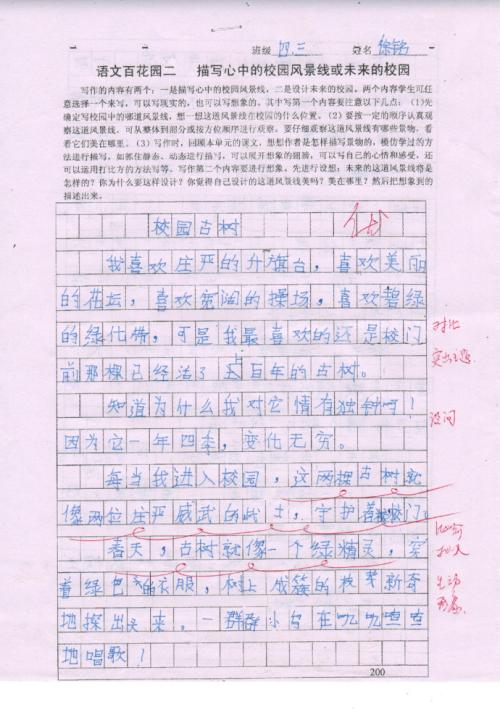 班级 四.三 姓名 徐铭
语文百花园二 描写心中的校园风景线或未来的校园
写作的内容有两个：一是描写心中的校园风景线，二是设计未来的校园。两个内容学生可任
意选择一个来写，可以写现实的，也可以写想象的，其中写第一个内容要注意以下几点：（1）先
确定写校园中的哪道风景线，想一想这道风景线在校园的什么位置。（2）要按一定的顺序认真观
察这道风景线，可从整体到部分或按方位顺序进行观察，要仔细观察这道风景线有哪些景物，看
看它们美在哪里。（3）写作时，回顾本单元的课文，想想作者是怎样描写景物的，模仿学过的方
法进行描写，如抓住静态、动态进行描写，可以展开想象的翅膀，可以写自己的心情和感受，还
可以运用打比方的方法写等。写作第二个内容要进行想象。先进行设想：未来的这道风景线将是
怎样的？你为什么要这样设计？你觉得自己设计的这道风景线美吗？美在哪里？然后把想象到的
描述出来。
校园古树
优
我喜欢庄严的升旗台，喜欢美丽
的花坛，喜欢宽阔的操场，喜欢碧绿
的绿化带，可是我最喜欢的还是校门
对比
前那棵已经活了上百年的古树。
突出主题
知道为什么我对它情有独钟吗！
设问
因为它一年四季，变化无穷。
每当我进入校园，这两棵古树就
像两位庄严威武的战士，守护着校门。
比喻
春天，古树就像一个绿精灵，穿
拟人
着绿色的衣服，树上成簇的枝芽新奇
生动
地探出头来。一群群小鸟在叽叽喳喳
形象
地唱歌！
200